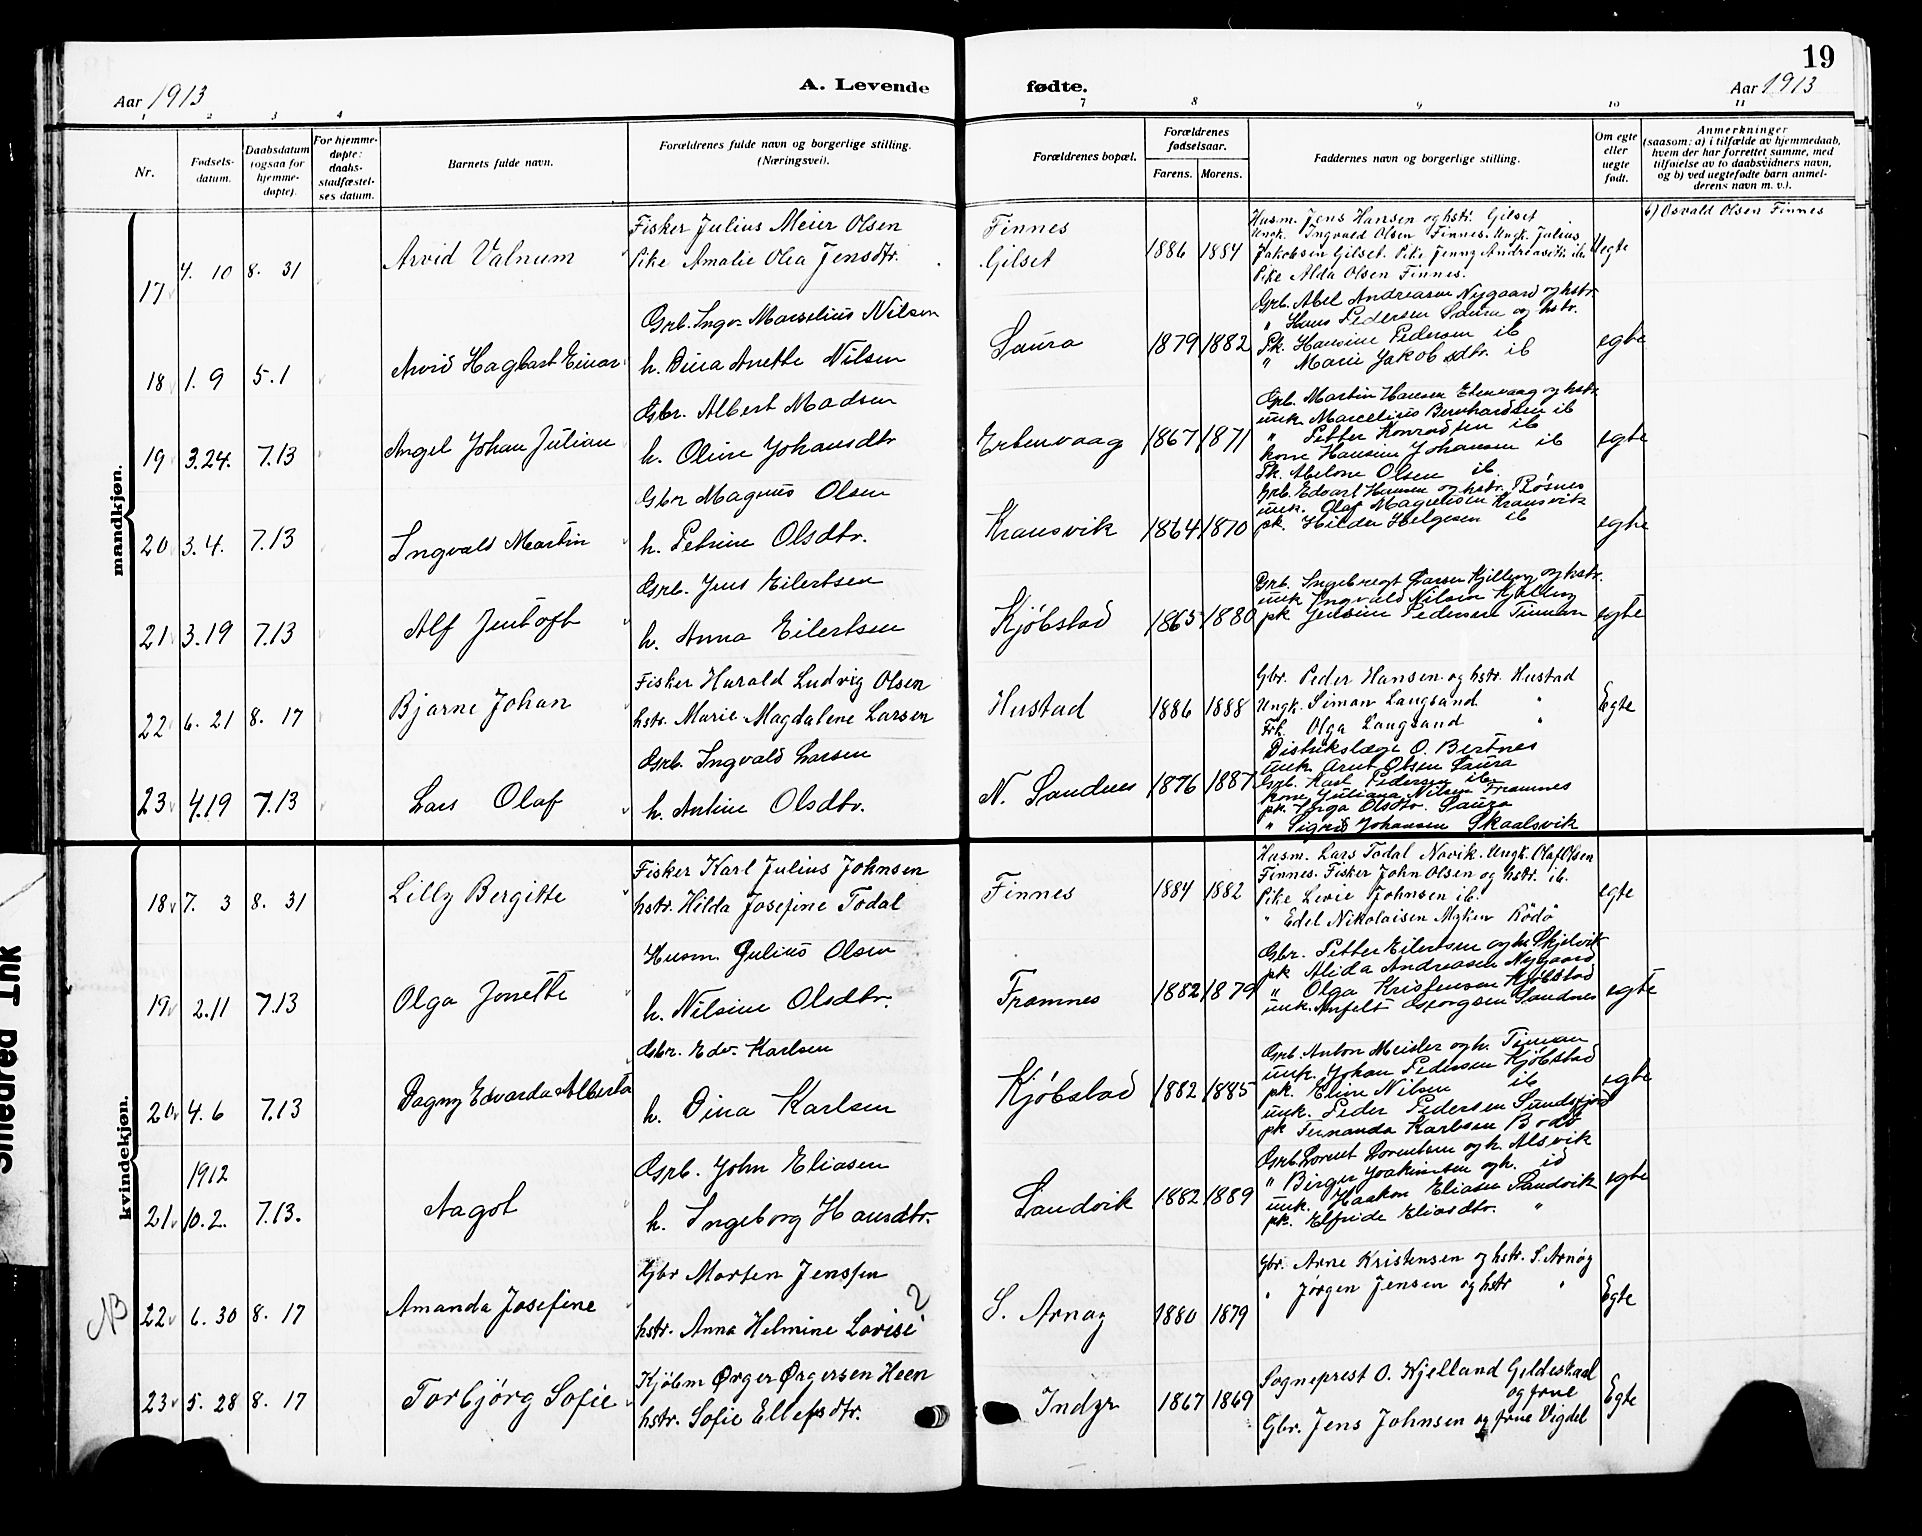 19
Aar 1913
A. Levende
fødte.
Aar 1913
1 2 3 4
7 8 9 10 11
Nr.
Fødsels-
datum.
Daabsdatum
(ogsaa for
hjemme-
døpte).
For hjemme-
døpte:
daabs-
stadfæstel-
ses datum.
Barnets fulde navn.
Forældrenes fulde navn og borgerlige stilling.
(Næringsvei).
Forældrenes bopæl.
Forældrenes
fødselsaar.
Farens. Morens.
Faddernes navn og borgerlige stilling.
Om egte
eller
uegte
født.
Anmerkninger
(saasom: a) i tilfælde av hjemmedaab,
hvem der har forrettet samme, med
tilføielse av to daabsvidners navn,
og b) ved uegtefødte barn anmel-
derens navn m. v.).
mandkjøn.
17 4. 10 8. 31
Arvid Valnum
Fisker Julius Meier Olsen
Pike Amalie Olea Jensdtr.
Finnes
Gilset
1886 1884
Husm. Jens Hansen og hstr. Gilset
Ungk. Ingvald Olsen Finnes. Ungk. Julius
Jakobsen Gilset. Pike Jenny Andreasstr. ib.
Pike Alda Olsen Finnes.
Uegte
b) Osvald Olsen Finnes
18 1. 9 5. 1
Arvid Hagbart Einar
Grb. Ingv. Marselius Nilsen
h. Dina Anette Nilsen
Saura
1879 1882
Grb. Abel Andreasen Nygaard og hstr.
" Hans Pedersen Saura og hstr.
Pk. Hansine Pedersen ib
" Marie Jakobsdtr. ib
egte
19 3.24. 7.13
Angel Johan Julian
Gbr. Albert Madsen
h. Oline Johansdtr
Ertenvaag
1867 1871
Grb. Martin Hansen Etenvaag og hstr.
unk. Marcelius Bernhardsen ib
" Petter Konradsen ib
kone Hansine Johansen ib
Pk. Abelone Olsen ib.
egte
20 3. 4. 7.13
Ingvald Martin
Gbr Magnus Olsen
h. Petrine Olsdtr.
Kransvik
1864 1870
Grb. Edvart Hansen og hstr. Røsnes
unk. Olaf Magnusen Kransvik
pk. Hilda Helgesen ib
egte
21 3.19 7.13
Alf Jentoft
Grb. Jens Eilertsen
h. Anna Eilertsen
Kjøbstad
1865 1880
Grb. Ingebregt Larsen Kjelling og hstr.
unk Ingvald Nilsen Kjelling
pk Jensine Pedersen Tinman
egte
22 6. 21 8. 17
Bjarne Johan
Fisker Harald Ludvig Olsen
hstr. Marie Magdalene Larsen
Hustad
1886 1888
Gbr. Peder Hansen og hstr. Hustad
Ungk. Simon Langsand "
Frk. Olga Langsand "
Egte
23 4.19 7.13
Lars Olaf
Grb. Ingvald Larsen
h. Antine Olsdtr.
N. Sandnes
1876 1887
Distriktslæge O. Bertnes
unk. Arnt Olsen Saura
Grb. Karl Pedersen ib.
kone Juliana Nilsen Framnes
pk. Inga Olsdtr. Saura
" Sigrid Johansen Skaalsvik
kvindekjøn.
18 7. 3 8. 31
Lilly Bergitte
Fisker Karl Julius Johnsen
hstr. Hilda Josefine Todal
Finnes
1884 1882
Husm. Lars Todal Novik. Ungk. Olaf Olsen
Finnes. Fisker John Olsen og hstr. ib.
Pike Levie Johnsen ib.
" Edel Nikolaisen Myken Rödö
egte
19 2.11 7.13
Olga Jonette
Husm. Julius Olsen
h. Nilsine Olsdtr.
Framnes
1882 1879
Gbr. Petter Eilertsen og h. Skjelvik
pk Alida Andreasen Nygaard
" Olga Kristensen Kjøbstad
unk. Anfelt Georgsen Sandnes
egte
20 4. 6 7.13
Dagny Edvarda Alberta
Gbr. Edv. Karlsen
h. Dina Karlsen
Kjøbstad
1882 1885
Grb. Anton Meisler og h. Tinman
unk. Johan Pedersen Kjøbstad
pk. Eline Nilsen ib
unk. Peder Pedersen Sundsfjord
pk Fernanda Karlsen Bodø
egte
1912
21 10.2. 7.13.
Aagot
Grb. John Eliasen
h. Ingeborg Hansdtr.
Sandvik
1882 1889
Grb Lorent Lorentsen og h. Alsvik
" Birger Joakimsen og h. id
unk. Haakon Eliasen Sandvik
pk. Elfride Eliasdtr. "
egte
NB
22 6. 30 8. 17
Amanda Josefine
Gbr Morten Jenssen
hstr. Anna Helmine Lovise ?
S. Arnøy
1880 1879
Gbr. Arne Kristensen og hstr. S. Arnøy
" Jørgen Jensen og hstr "
Egte
23 5. 28 8. 17
Torbjörg Sofie
Kjöbm Ørger Ørgersen Heen
hstr. Sofie Ellefsdtr.
Indyr
1867 1869
Sogneprest O. Kjelland Gildeskaal
og frue
Gbr. Jens Johnsen og frue Vigdel
Egte
Smedred Ink